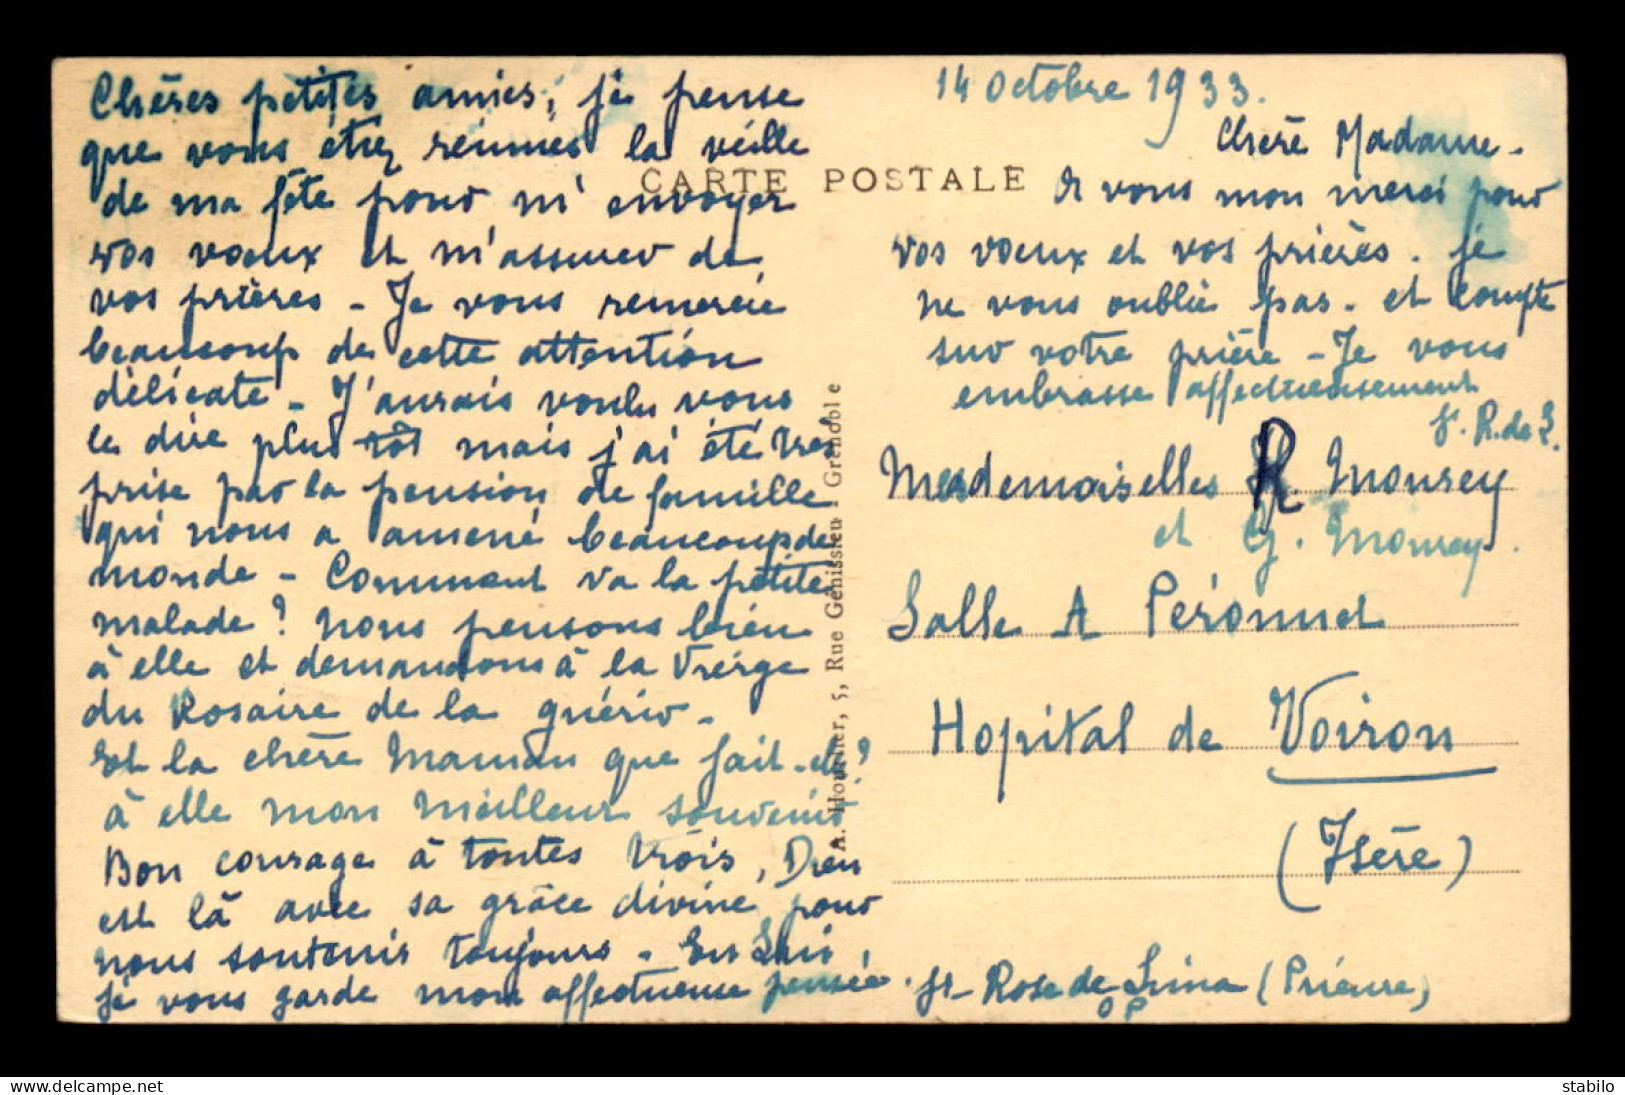 Chères petites amies, je pense
que vous etiez réunies la veille
de ma fête pour m'envoyer
vos vœux et m'assurer de
vos prières - Je vous remercie
beaucoup de cette attention
délicate - J'aurais voulu vous
le dire plus tôt mais j'ai été très
prise par la pension de famille
qui nous a amené beaucoup de
monde - Comment va la petite
malade ? nous pensons bien
à elle et demandons à la Vierge
du Rosaire de la guérir -
Et la chère Maman que fait-elle ?
à elle mon meilleur souvenir
Bon courage à toutes trois, Dieu
est là avec sa grâce divine pour
nous soutenir toujours - En Lui
je vous garde mon affectueuse pensée.
Sr Rose de Lima (Prieure)
OP
CARTE POSTALE
A. Hourlier, 5, Rue Génissieu - Grenoble
14 Octobre 1933.
Chère Madame -
A vous mon merci pour
vos vœux et vos prières. je
ne vous oublie pas - et compte
sur votre prière - Je vous
embrasse affectueusement
Sr. R. de L.
Mesdemoiselles R. Mourey
et G. Mourey.
Salle A Péronnet
Hopital de Voiron
(Isère)
stabilo
https://www.delcampe.net